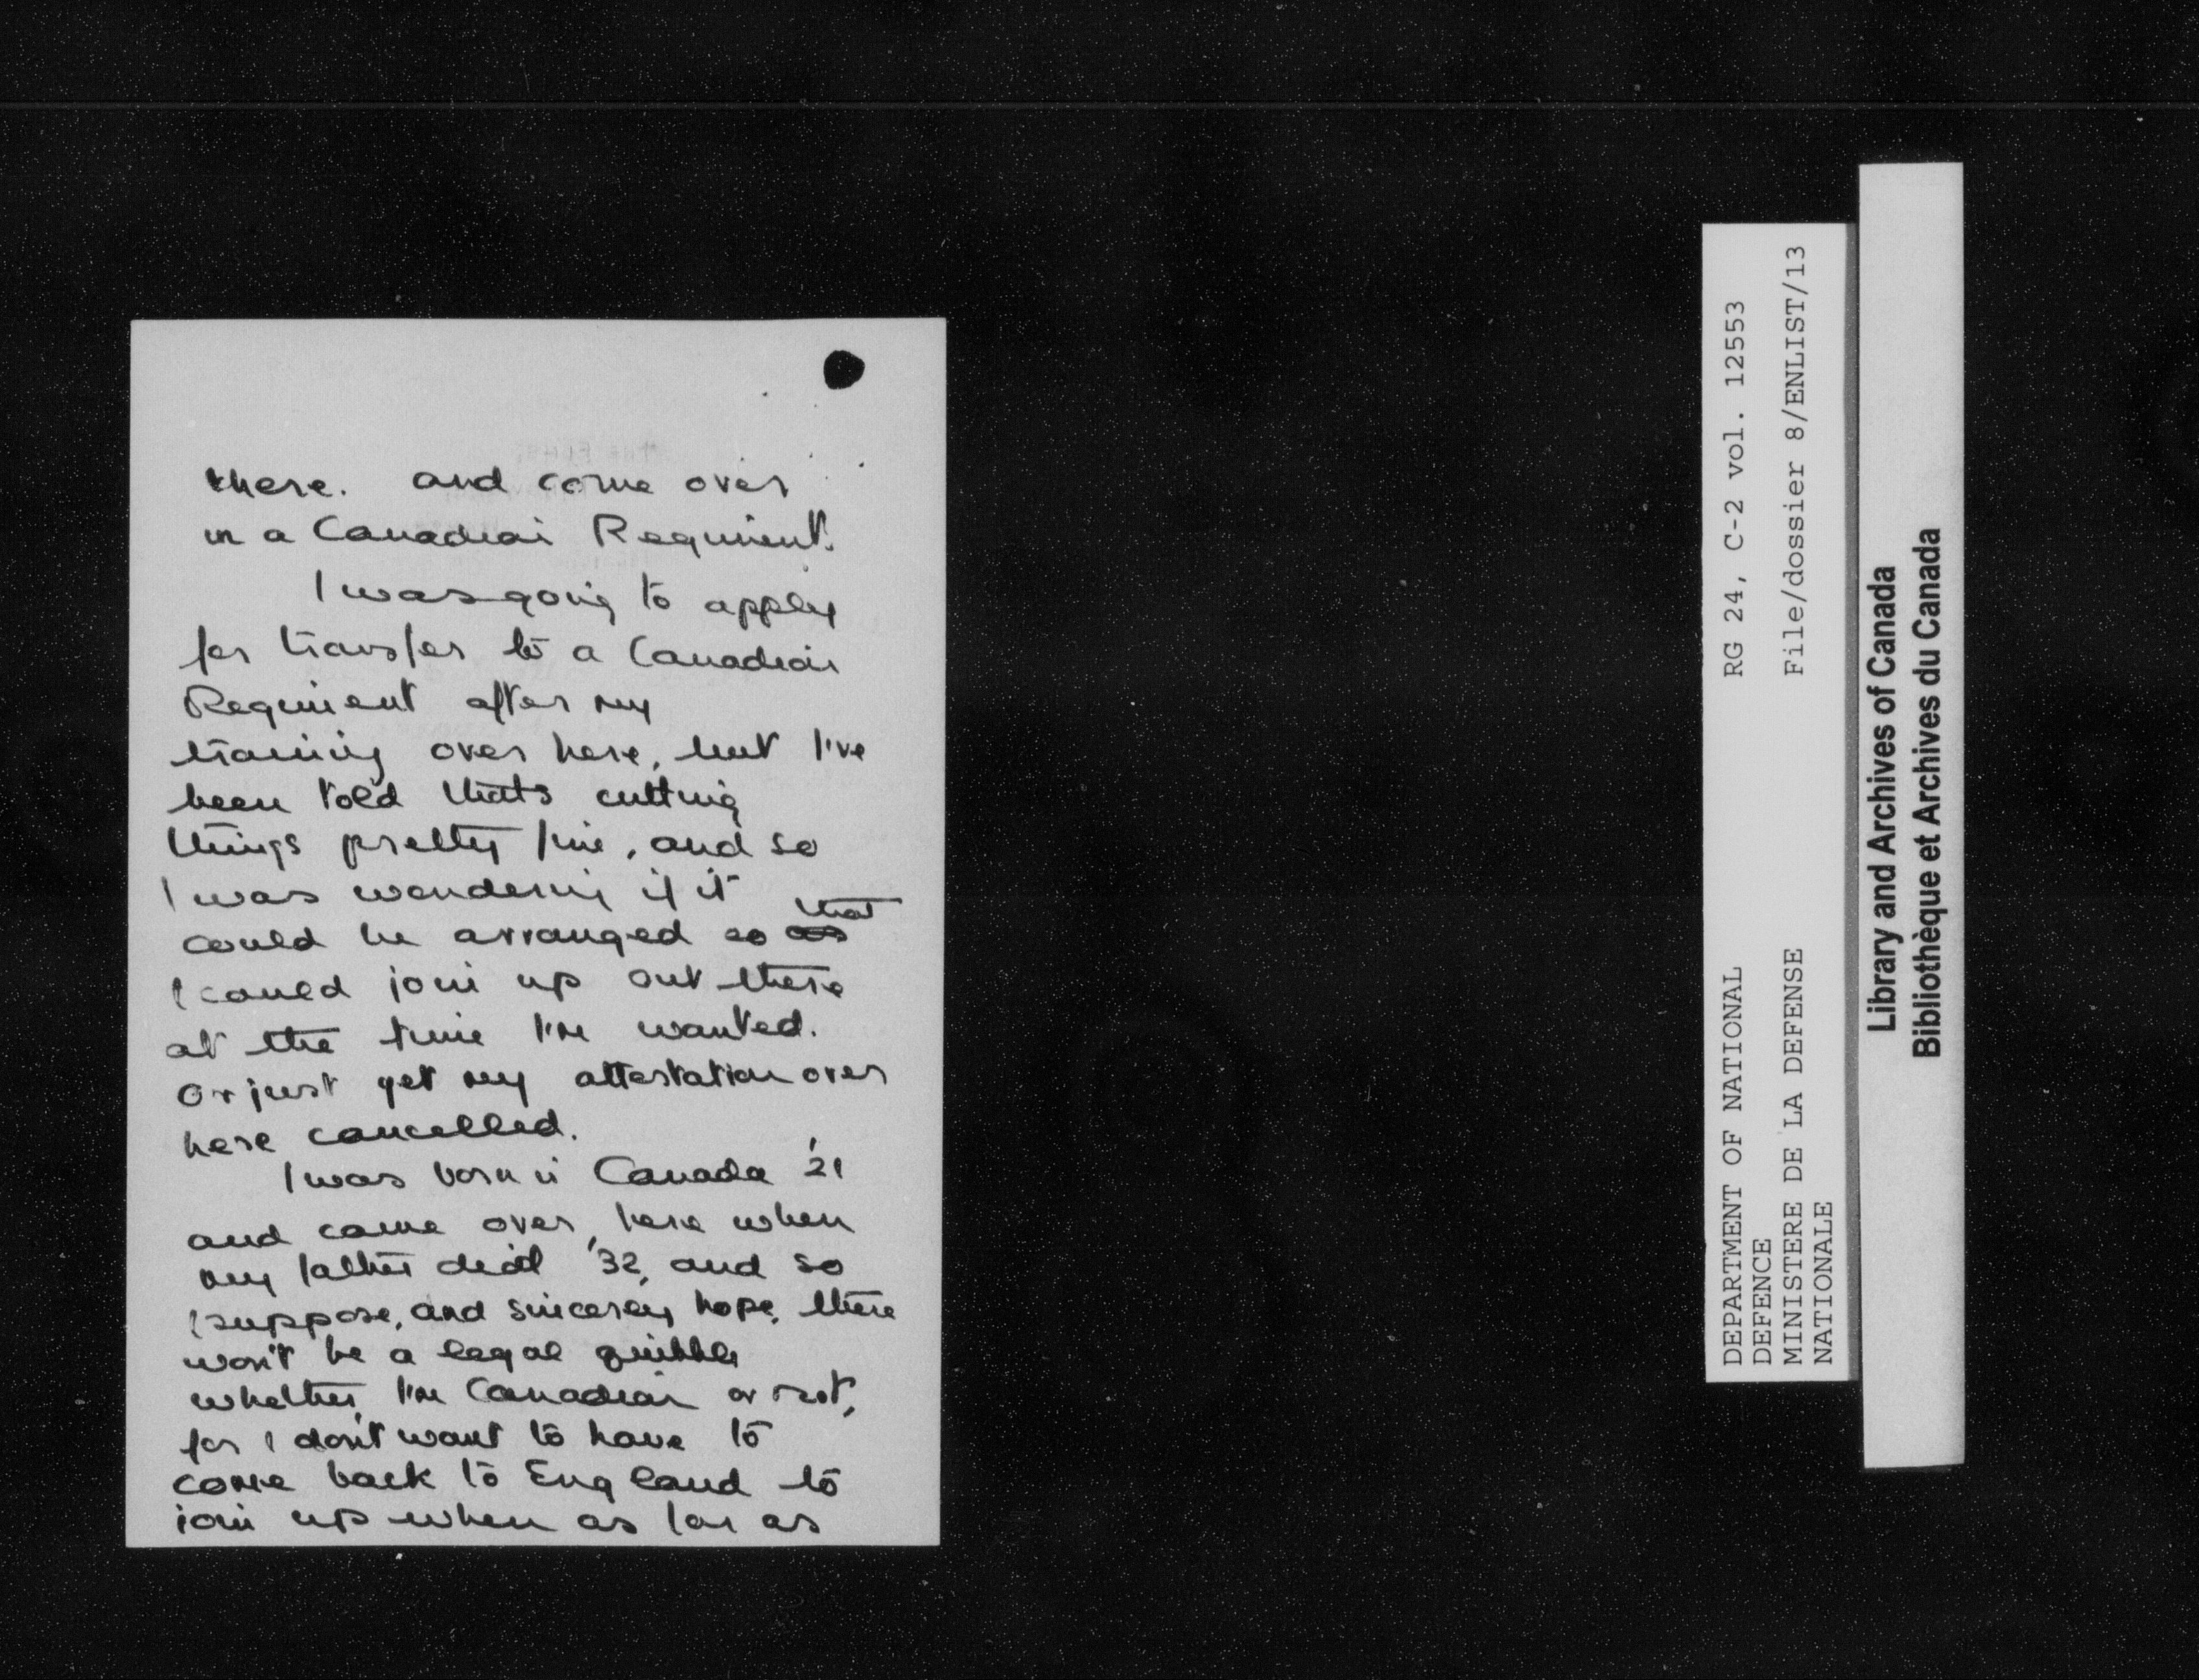 there. and come over
in a Canadian Regiment.
I was going to apply
for transfer to a Canadian
Regiment after my
training over here, but I've
been told thats cutting
things pretty fine, and so
I was wondering if it
could be arranged so as that
I could join up out there
at the time I'm wanted.
Or just get my attestation over
here cancelled.
I was born in Canada '21
and came over here when
my father died '32, and so
I suppose, and sincerely hope, there
won't be a legal quibble
whether I'm Canadian or not,
for I don't want to have to
come back to England to
join up when as far as
DEPARTMENT OF NATIONAL
DEFENCE
MINISTERE DE LA DEFENSE
NATIONALE
RG 24, C-2 vol. 12553
File/dossier 8/ENLIST/13
Library and Archives of Canada
Bibliothèque et Archives du Canada